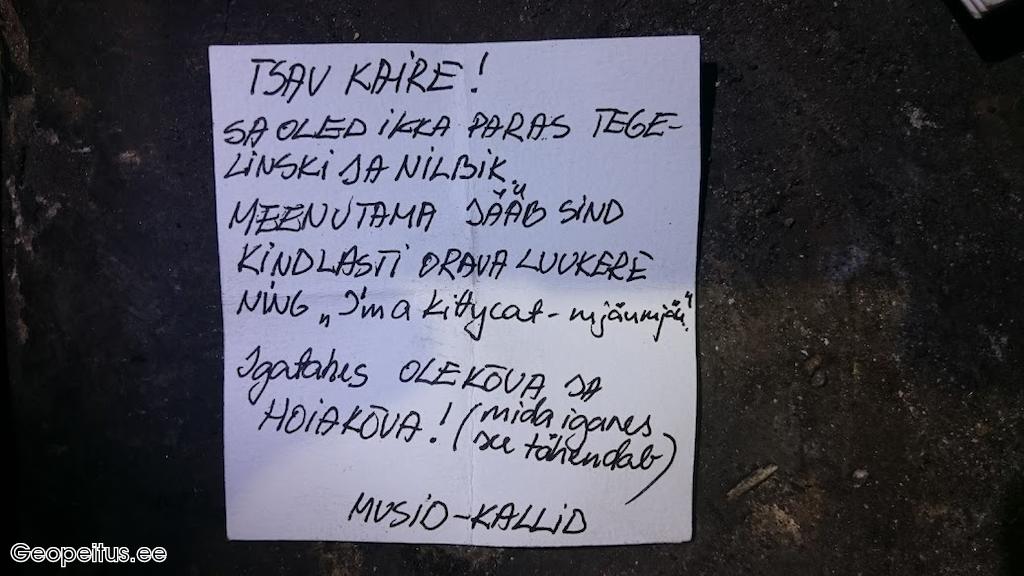 TSAV KAIRE!
SA OLED iKKA PARAS TEGE-
LiNSKi JA NiLBiK.
MEENUTAMA JÄÄB SiND
KiNDLASTi ORAVA LUUKERE
NiNG „I'm a kittycat - mjäumjäu"
Igatahes OLE KÕVA JA
HOiA KÕVA! (mida iganes
see tähendab)
MUSiD-KALLiD
Geopeitus.ee